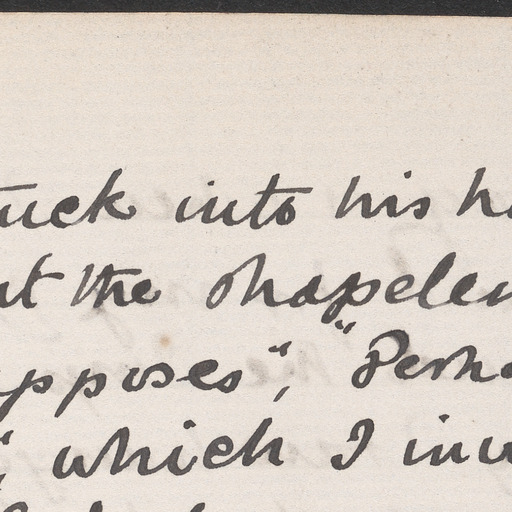 tuck into his h
ut the shapelen
pposes", "Perha
", which I inv